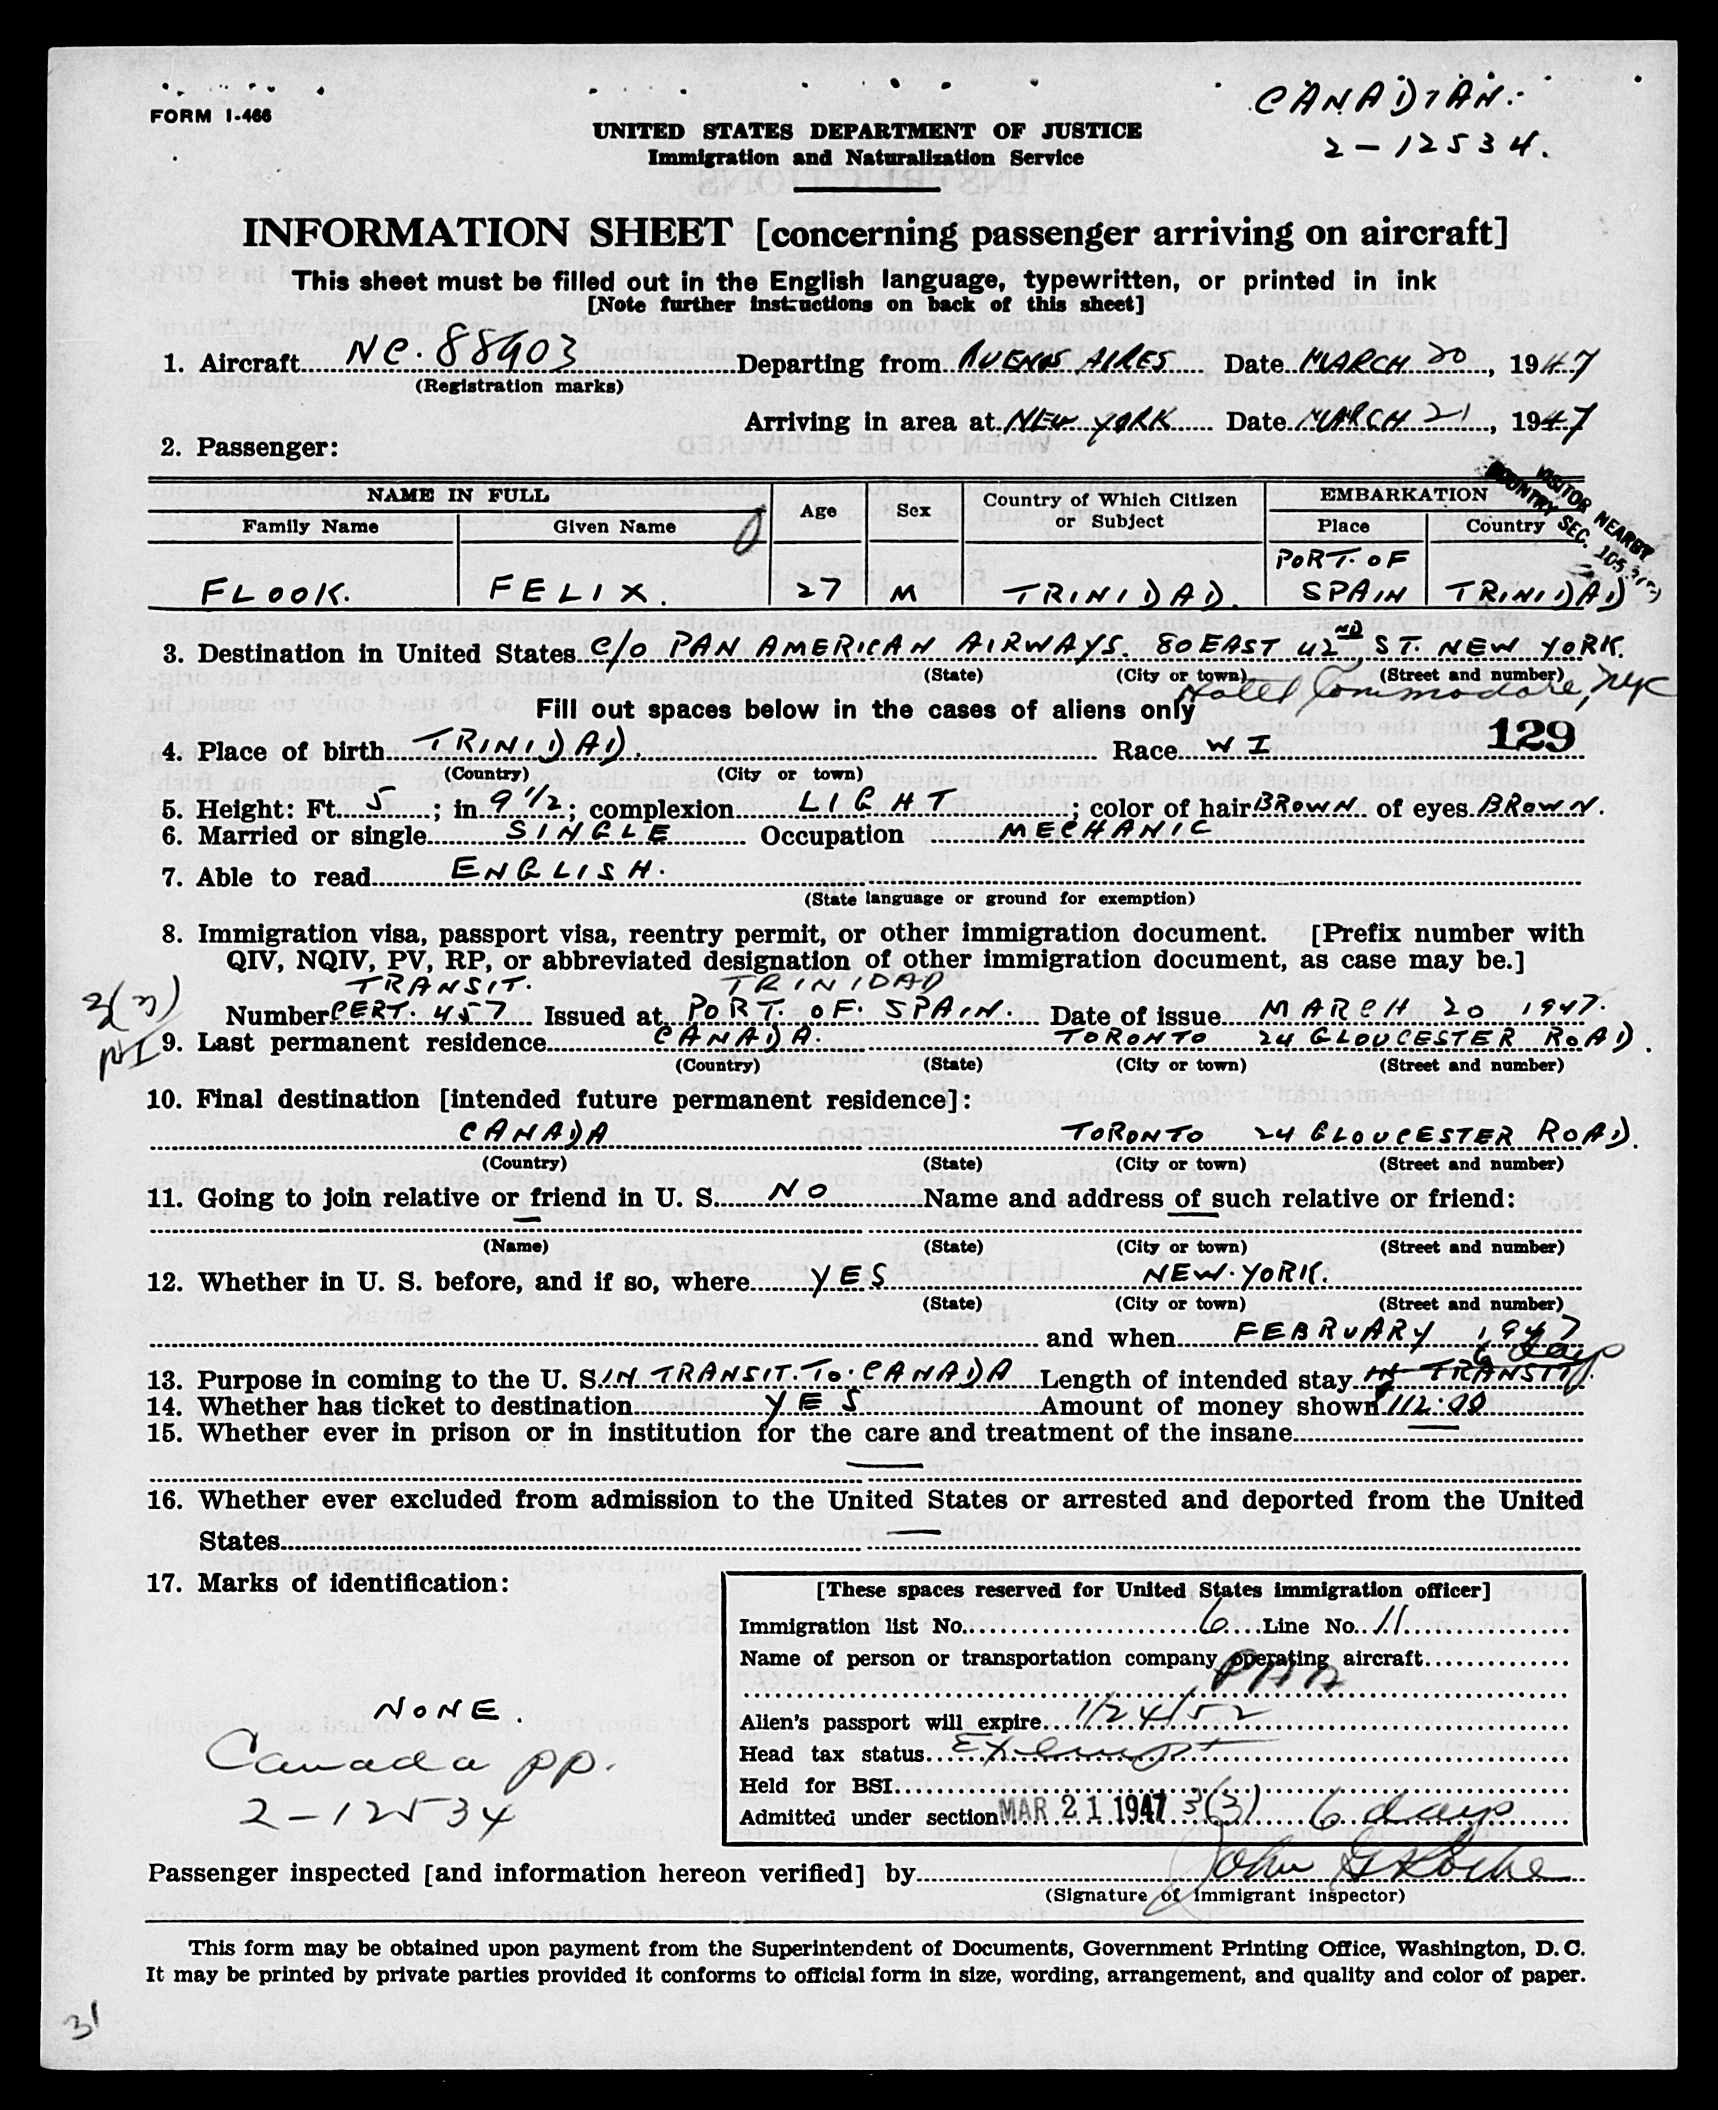 CANADIAN.
FORM I-466
UNITED STATES DEPARTMENT OF JUSTICE
2-12534.
Immigration and Naturalization Service
INFORMATION SHEET [concerning passenger arriving on aircraft]
This sheet must be filled out in the English language, typewritten, or printed in ink
[Note further instructions on back of this sheet]
1. Aircraft NC. 88903 Departing from BUENOS AIRES Date MARCH 20, 1947
(Registration marks)
Arriving in area at NEW YORK Date MARCH 21, 1947
2. Passenger:
VISITOR NEARBY
COUNTRY SEC.
NAME IN FULL Age Sex Country of Which Citizen or Subject EMBARKATION
Family Name Given Name Place Country
FLOOK. FELIX. 27 M TRINIDAD. PORT. OF SPAIN TRINIDAD
3. Destination in United States C/O PAN AMERICAN AIRWAYS. 80 EAST 42ND ST. NEW YORK.
(State) (City or town) (Street and number)
Hotel Commodore, NYC
Fill out spaces below in the cases of aliens only
129
4. Place of birth TRINIDAD. Race W I
(Country) (City or town)
5. Height: Ft. 5; in. 9 1/2; complexion LIGHT; color of hair BROWN of eyes BROWN.
6. Married or single SINGLE Occupation MECHANIC
7. Able to read ENGLISH.
(State language or ground for exemption)
8. Immigration visa, passport visa, reentry permit, or other immigration document. [Prefix number with
QIV, NQIV, PV, RP, or abbreviated designation of other immigration document, as case may be.]
TRANSIT. TRINIDAD
Number CERT. 457 Issued at PORT. OF. SPAIN. Date of issue MARCH 20 1947.
9. Last permanent residence CANADA. TORONTO 24 GLOUCESTER ROAD.
(Country) (State) (City or town) (Street and number)
10. Final destination [intended future permanent residence]:
CANADA TORONTO 24 GLOUCESTER ROAD.
(Country) (State) (City or town) (Street and number)
11. Going to join relative or friend in U. S. NO Name and address of such relative or friend:
(Name) (State) (City or town) (Street and number)
12. Whether in U. S. before, and if so, where YES NEW. YORK.
(State) (City or town) (Street and number)
and when FEBRUARY 1947
6 days
13. Purpose in coming to the U. S. IN TRANSIT. TO. CANADA Length of intended stay IN TRANSIT
14. Whether has ticket to destination YES Amount of money shown 112.00
15. Whether ever in prison or in institution for the care and treatment of the insane
16. Whether ever excluded from admission to the United States or arrested and deported from the United
States
17. Marks of identification:
NONE.
Canada pp.
2-12534
[These spaces reserved for United States immigration officer]
Immigration list No. 6 Line No. 11
Name of person or transportation company operating aircraft
PAA
Alien's passport will expire 1/24/52
Head tax status Exempt
Held for BSI
Admitted under section MAR 21 1947 3(3) 6 days
Passenger inspected [and information hereon verified] by John G Roche
(Signature of immigrant inspector)
This form may be obtained upon payment from the Superintendent of Documents, Government Printing Office, Washington, D. C.
It may be printed by private parties provided it conforms to official form in size, wording, arrangement, and quality and color of paper.
31